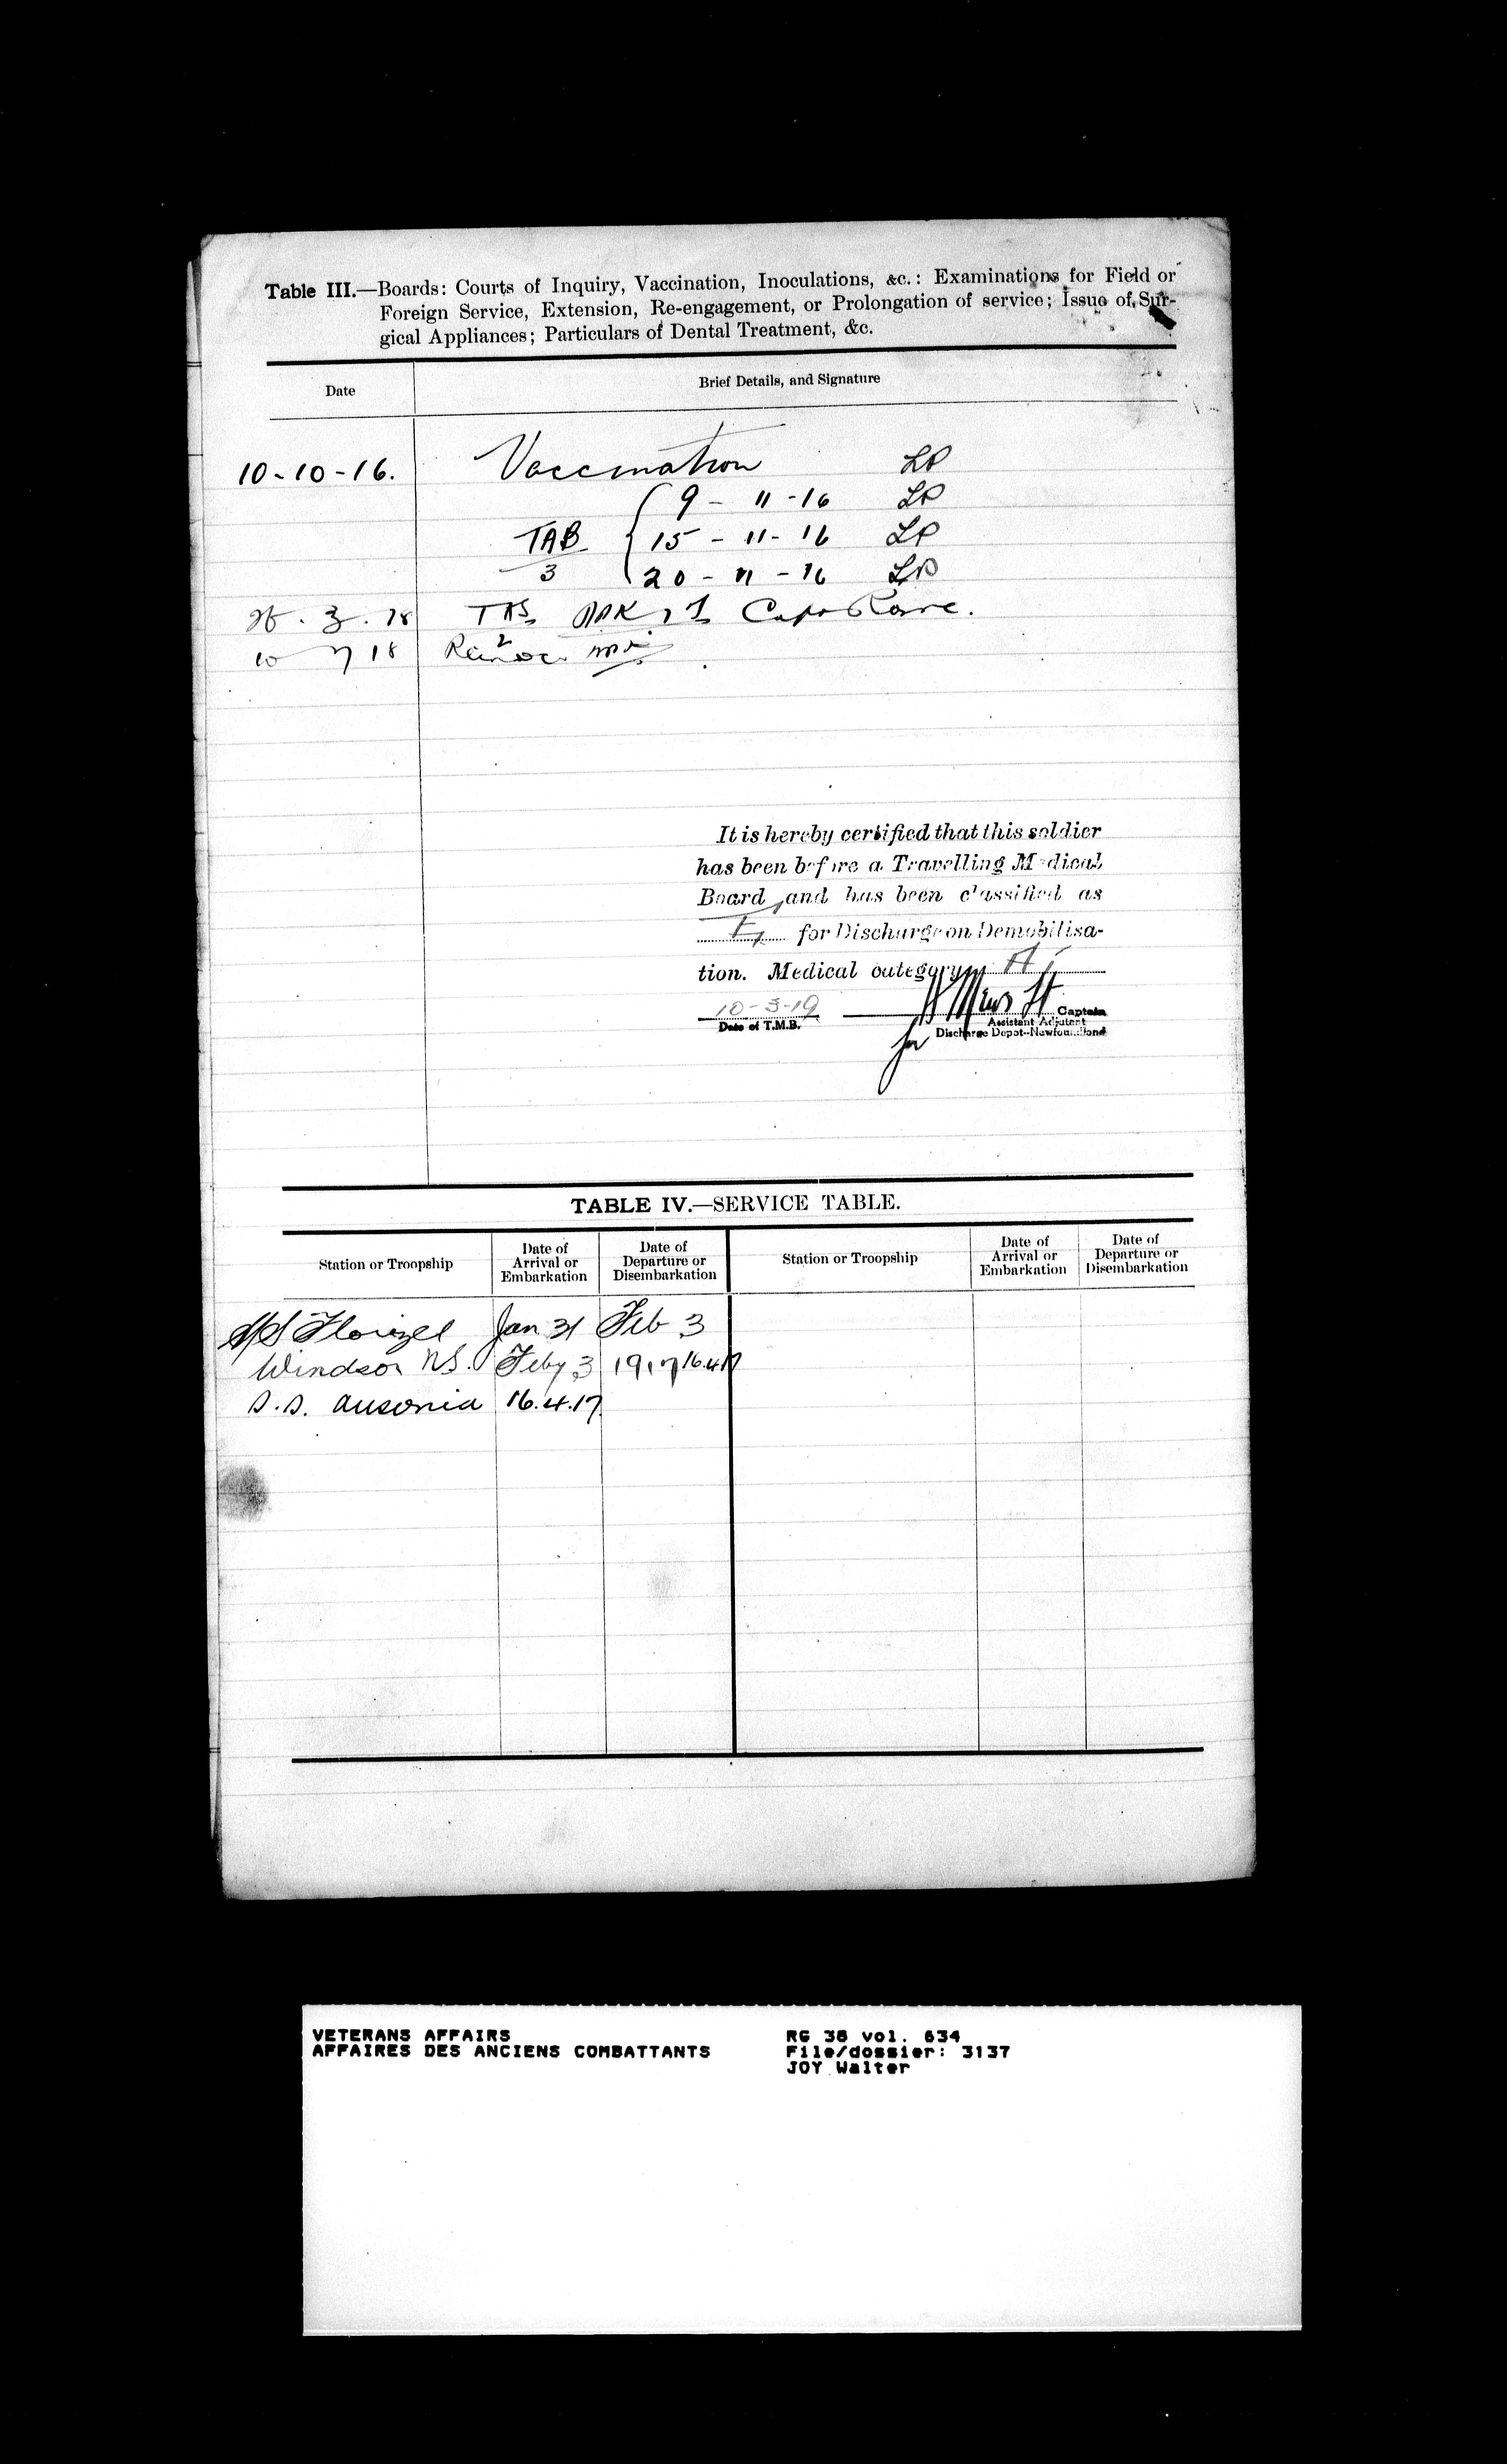 Table III.—Boards: Courts of Inquiry, Vaccination, Inoculations, &c.: Examinations for Field or
Foreign Service, Extension, Re-engagement, or Prolongation of service; Issue of Sur-
gical Appliances; Particulars of Dental Treatment, &c.
Date Brief Details, and Signature
10-10-16. Vaccination LP
9 - 11 - 16 LP
TAB 15 - 11 - 16 LP
3 20 - 11 - 16 LP
3 . 18 TAB
10 7 18
It is hereby certified that this soldier
has been before a Travelling Medical
Board, and has been classified as
for Discharge on Demobilisa-
tion. Medical category A
10-3-19 Captain
Date of T.M.B. Assistant Adjutant
for Discharge Depot--Newfoundland
TABLE IV.—SERVICE TABLE.
Station or Troopship Date of Arrival or Embarkation Date of Departure or Disembarkation Station or Troopship Date of Arrival or Embarkation Date of Departure or Disembarkation
S/S Florizel Jan 31 Feb 3
Windsor N.S. Feby 3 1917 16.4.17
S.S. Ausonia 16.4.17.
VETERANS AFFAIRS RG 38 vol. 634
AFFAIRES DES ANCIENS COMBATTANTS File/dossier: 3137
JOY Walter